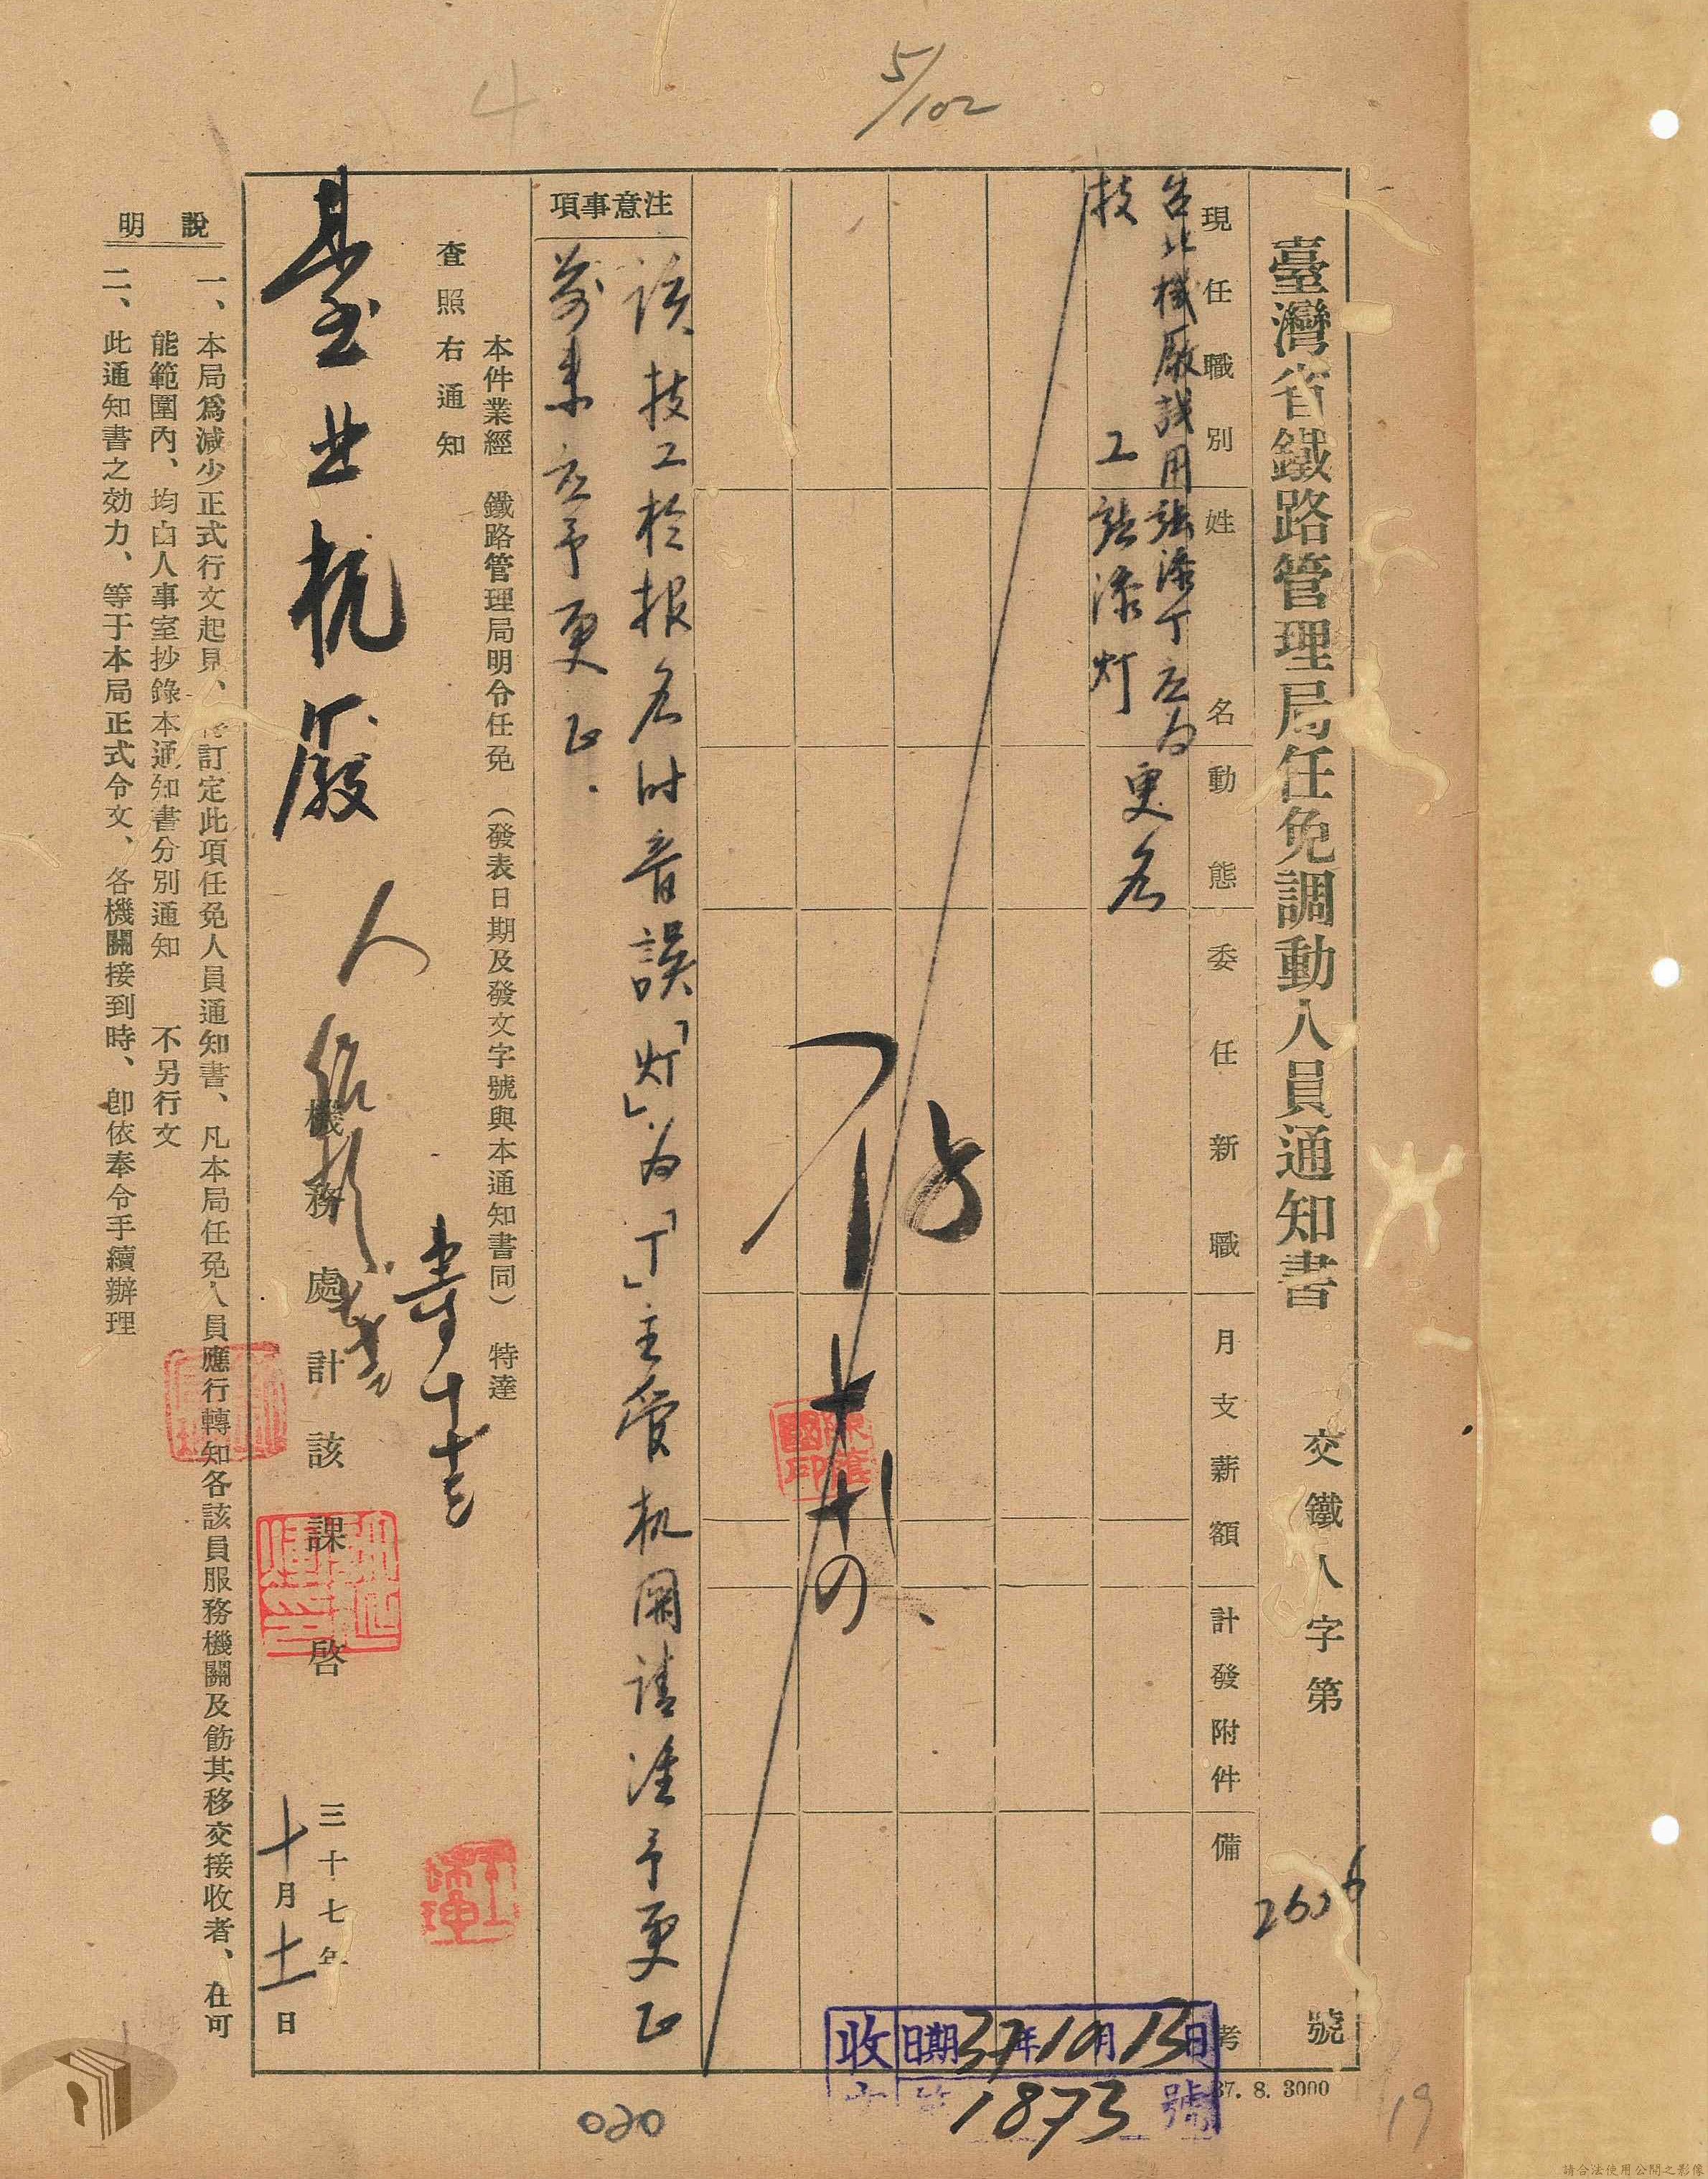 5/102
4
臺灣省鐵路管理局任免調動人員通知書
交鐵人字第 2606 號
現任職別 姓名 動態 委任新職 月支薪額 計發附件 備考
台北機廠試用張添丁应为
技工 張添灯 更名
注意事項
該技工於报名时音誤「灯」为「丁」主管机関請準予更正
前来应予更正.
本件業經 鐵路管理局明令任免 (發表日期及發文字號與本通知書同) 特達
查照右通知
臺北机廠
機務處計該課 啓
三十七年
十月十一日
說明
一、本局爲減少正式行文起見、特訂定此項任免人員通知書、凡本局任免人員應行轉知各該員服務機關及飭其移交接收者、在可
能範圍內、均由人事室抄錄本通知書分別通知 不另行文
二、此通知書之効力、等于本局正式令文、各機關接到時、卽依奉令手續辦理
收 日期 37年10月13日
1873號
37. 8. 3000
020
19
請合法使用公開之影像